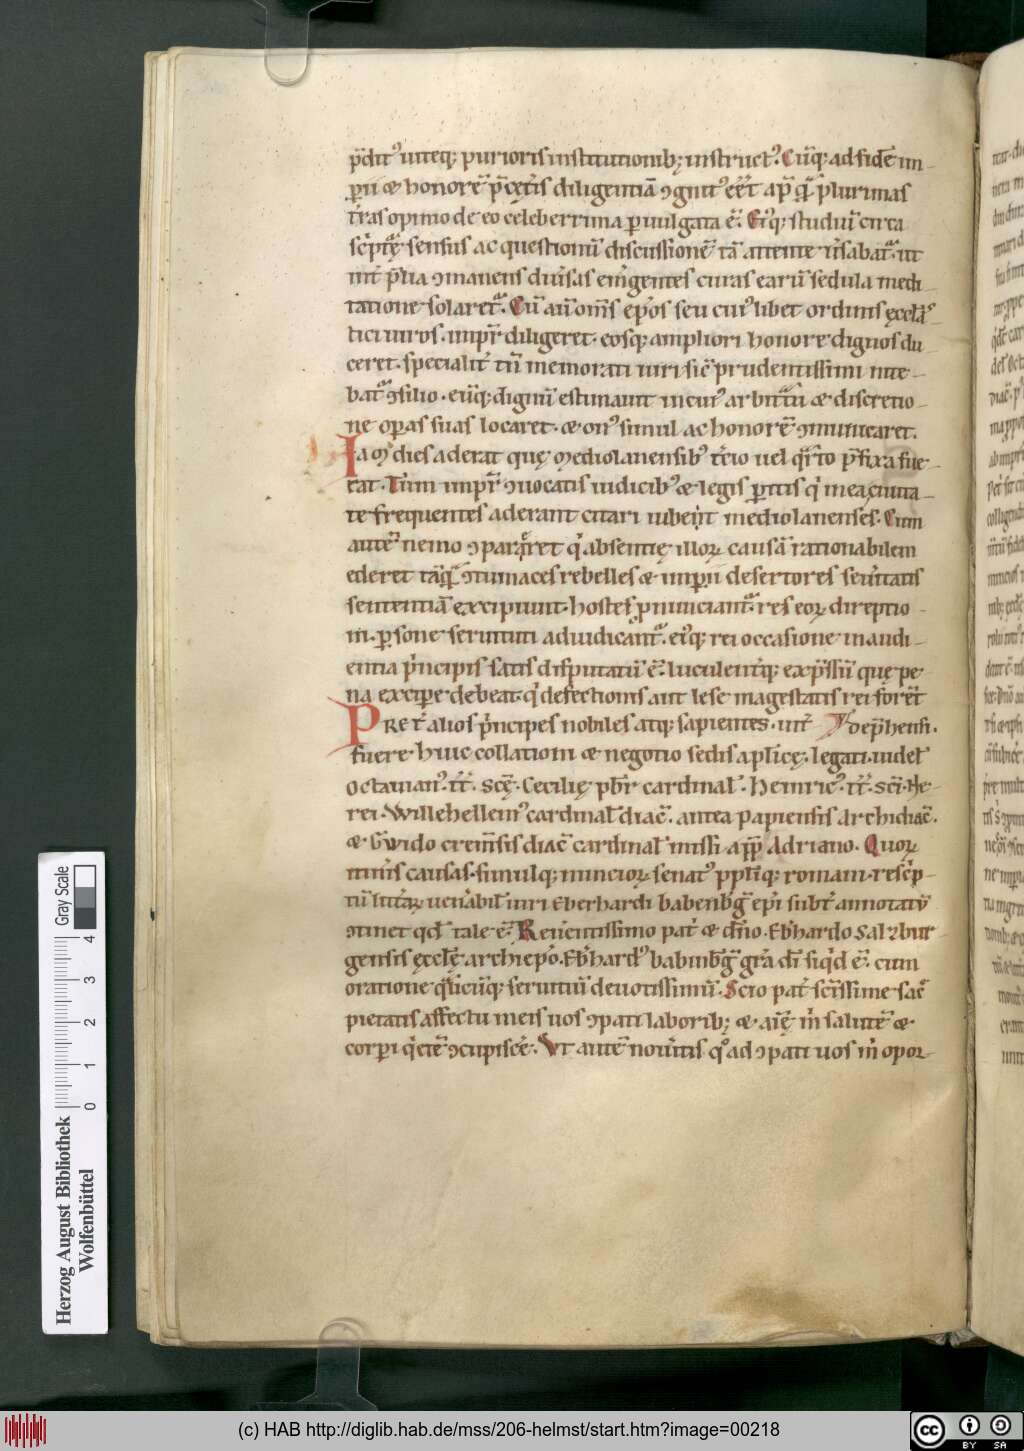 p̄dit᷒ uiteq; purioris institutionib; instruct᷒. Cui᷒q; ad fidē im-
perii & honorē p̄cęt̄is diligentiā ꝯgnit᷒ ēēt ap̄ q̄ plurimas
t̄ras opimo de eo celeberrima p̱uulgata ē. Ei᷒q; studiū circa
sc̄ptę sensus ac questionū discussionē tā attente ūsabat᷒. ut
int̄ p̄lia ꝯmanens diūsas em̄gentes curas earū sedula medi-
tatione solaret᷒. Cū aū om̄s ep̄os seu cui᷒libet ordinis ęccl̄as-
tici uiros. imp̄r diligeret. eosq; ampliori honore dignos du-
ceret. specialit̄ tn̄ memorati uiri sic̄ prudentissimi nite-
bat᷒ ꝯsilio. eūq; dignū estimauit in cui᷒ arbit̄ū & discretio-
ne op̱as suas locaret. & on᷒ simul ac honorē ꝯmunicaret.
Ia ō dies aderat quę mediolanensib᷒ t̄cio uel q̄rto p̄fixa fue-
rat. Tum imp̄r ꝯuocatis iudicib᷒ & legis p̱itis q̇ in ea ciuita-
te frequentes aderant citari iubent mediolanenses. Cum
autē nemo ꝯpareret q̇ absentię illoꝝ causā rationabilem
ederet tāq̄ ꝯtumaces rebelles & imp̱ii desertores seūitatis
sententiā excipiunt. hostes p̱nunciant᷒. res eoꝝ direptio-
ni. p̱sone seruituti adiudicant᷒. ei᷒q; rei occasione in audi-
entia ṗncipis satis disputatū ē. luculent̄q; exp̄ssū quę pe-
na excip̱e debeat q̇ defectionis aut lese magestatis rei forēt
Pret̄ alios ṗncipes nobiles atq; sapientes. int̄ dep̄hensi.
fuere huic collationi & negotio sedis ap̱licę. legati. uidel̄
octauian᷒. tt̄. sc̄ę. Cecilię pb̄r cardinal̄. heinric᷒. tt̄. sc̄i. He-
rei. Willehellem᷒ cardinal̄ diac̄. antea papiensis archidiac̄.
& Gwido crem̄sis diac̄ cardinal̄ missi a pp̄ Adriano. Quoꝝ
itin̄is causas. simulq; nuncioꝝ senat᷒ pp̱liq; romani. resc̄p-
tū litt̄aꝝ uen̄abil̄ uiri Eberhardi babenb̄g̅ ep̱i subt̄ annotatū
ꝯtinet qd̄ tale ē. Reūentissimo pat̄ & dn̄o. Eb̄hardo Salzbur-
gensis ęccl̄ę archiep̱o. Eb̄hard᷒ babinb̄g̅ gr̄a dī siq̇d ē. cum
oratione q̄licūq; seruitiū deuotissimū. Scio pat̄ sc̄issime sac̄
pietatis affectu meis uos ꝯpati laborib; & aīę m̄ salutē &
corp̱i q̇etē ꝯcupisc̄e. Vt autē nou̇itis qd̄ ad ꝯpati uos m̄ opor-
Herzog August Bibliothek
Wolfenbüttel
0 1 2 3 4
Gray Scale
(c) HAB http://diglib.hab.de/mss/206-helmst/start.htm?image=00218
cc BY SA